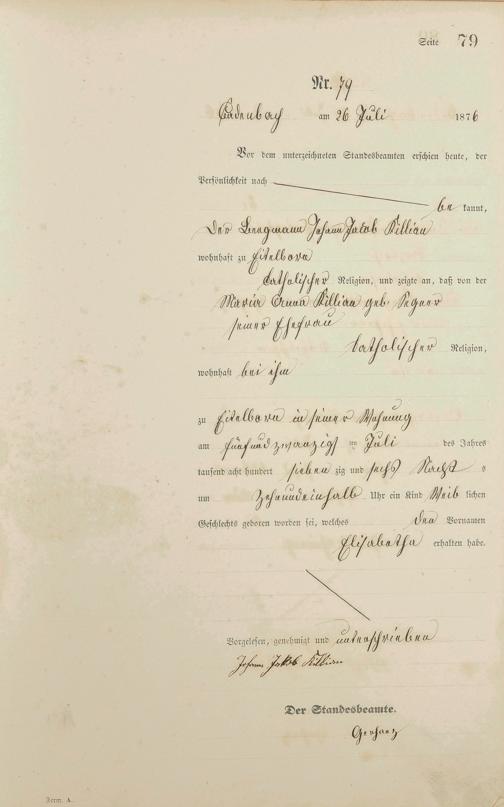 Seite 79
Nr. 79
Cadenbach am 26 Juli 1876
Vor dem unterzeichneten Standesbeamten erschien heute, der
Persönlichkeit nach
be kannt,
Der Bergmann Johann Jakob Killian
wohnhaft zu Eitelborn
katholischer Religion, und zeigte an, daß von der
Maria Anna Killian geb.
seiner Ehefrau
katholischer Religion,
wohnhaft bei ihm
zu Eitelborn in seiner Wohnung
am fünfundzwanzigst im Juli des Jahres
tausend acht hundert sieben zig und sechs Nacht s
um Zehnundeinhalb Uhr ein Kind Weib lichen
Geschlechts geboren worden sei, welches den Vornamen
Elisabetha erhalten habe.
Vorgelesen, genehmigt und unterschrieben
Johann Jakob Killian
Der Standesbeamte.
Form. A.